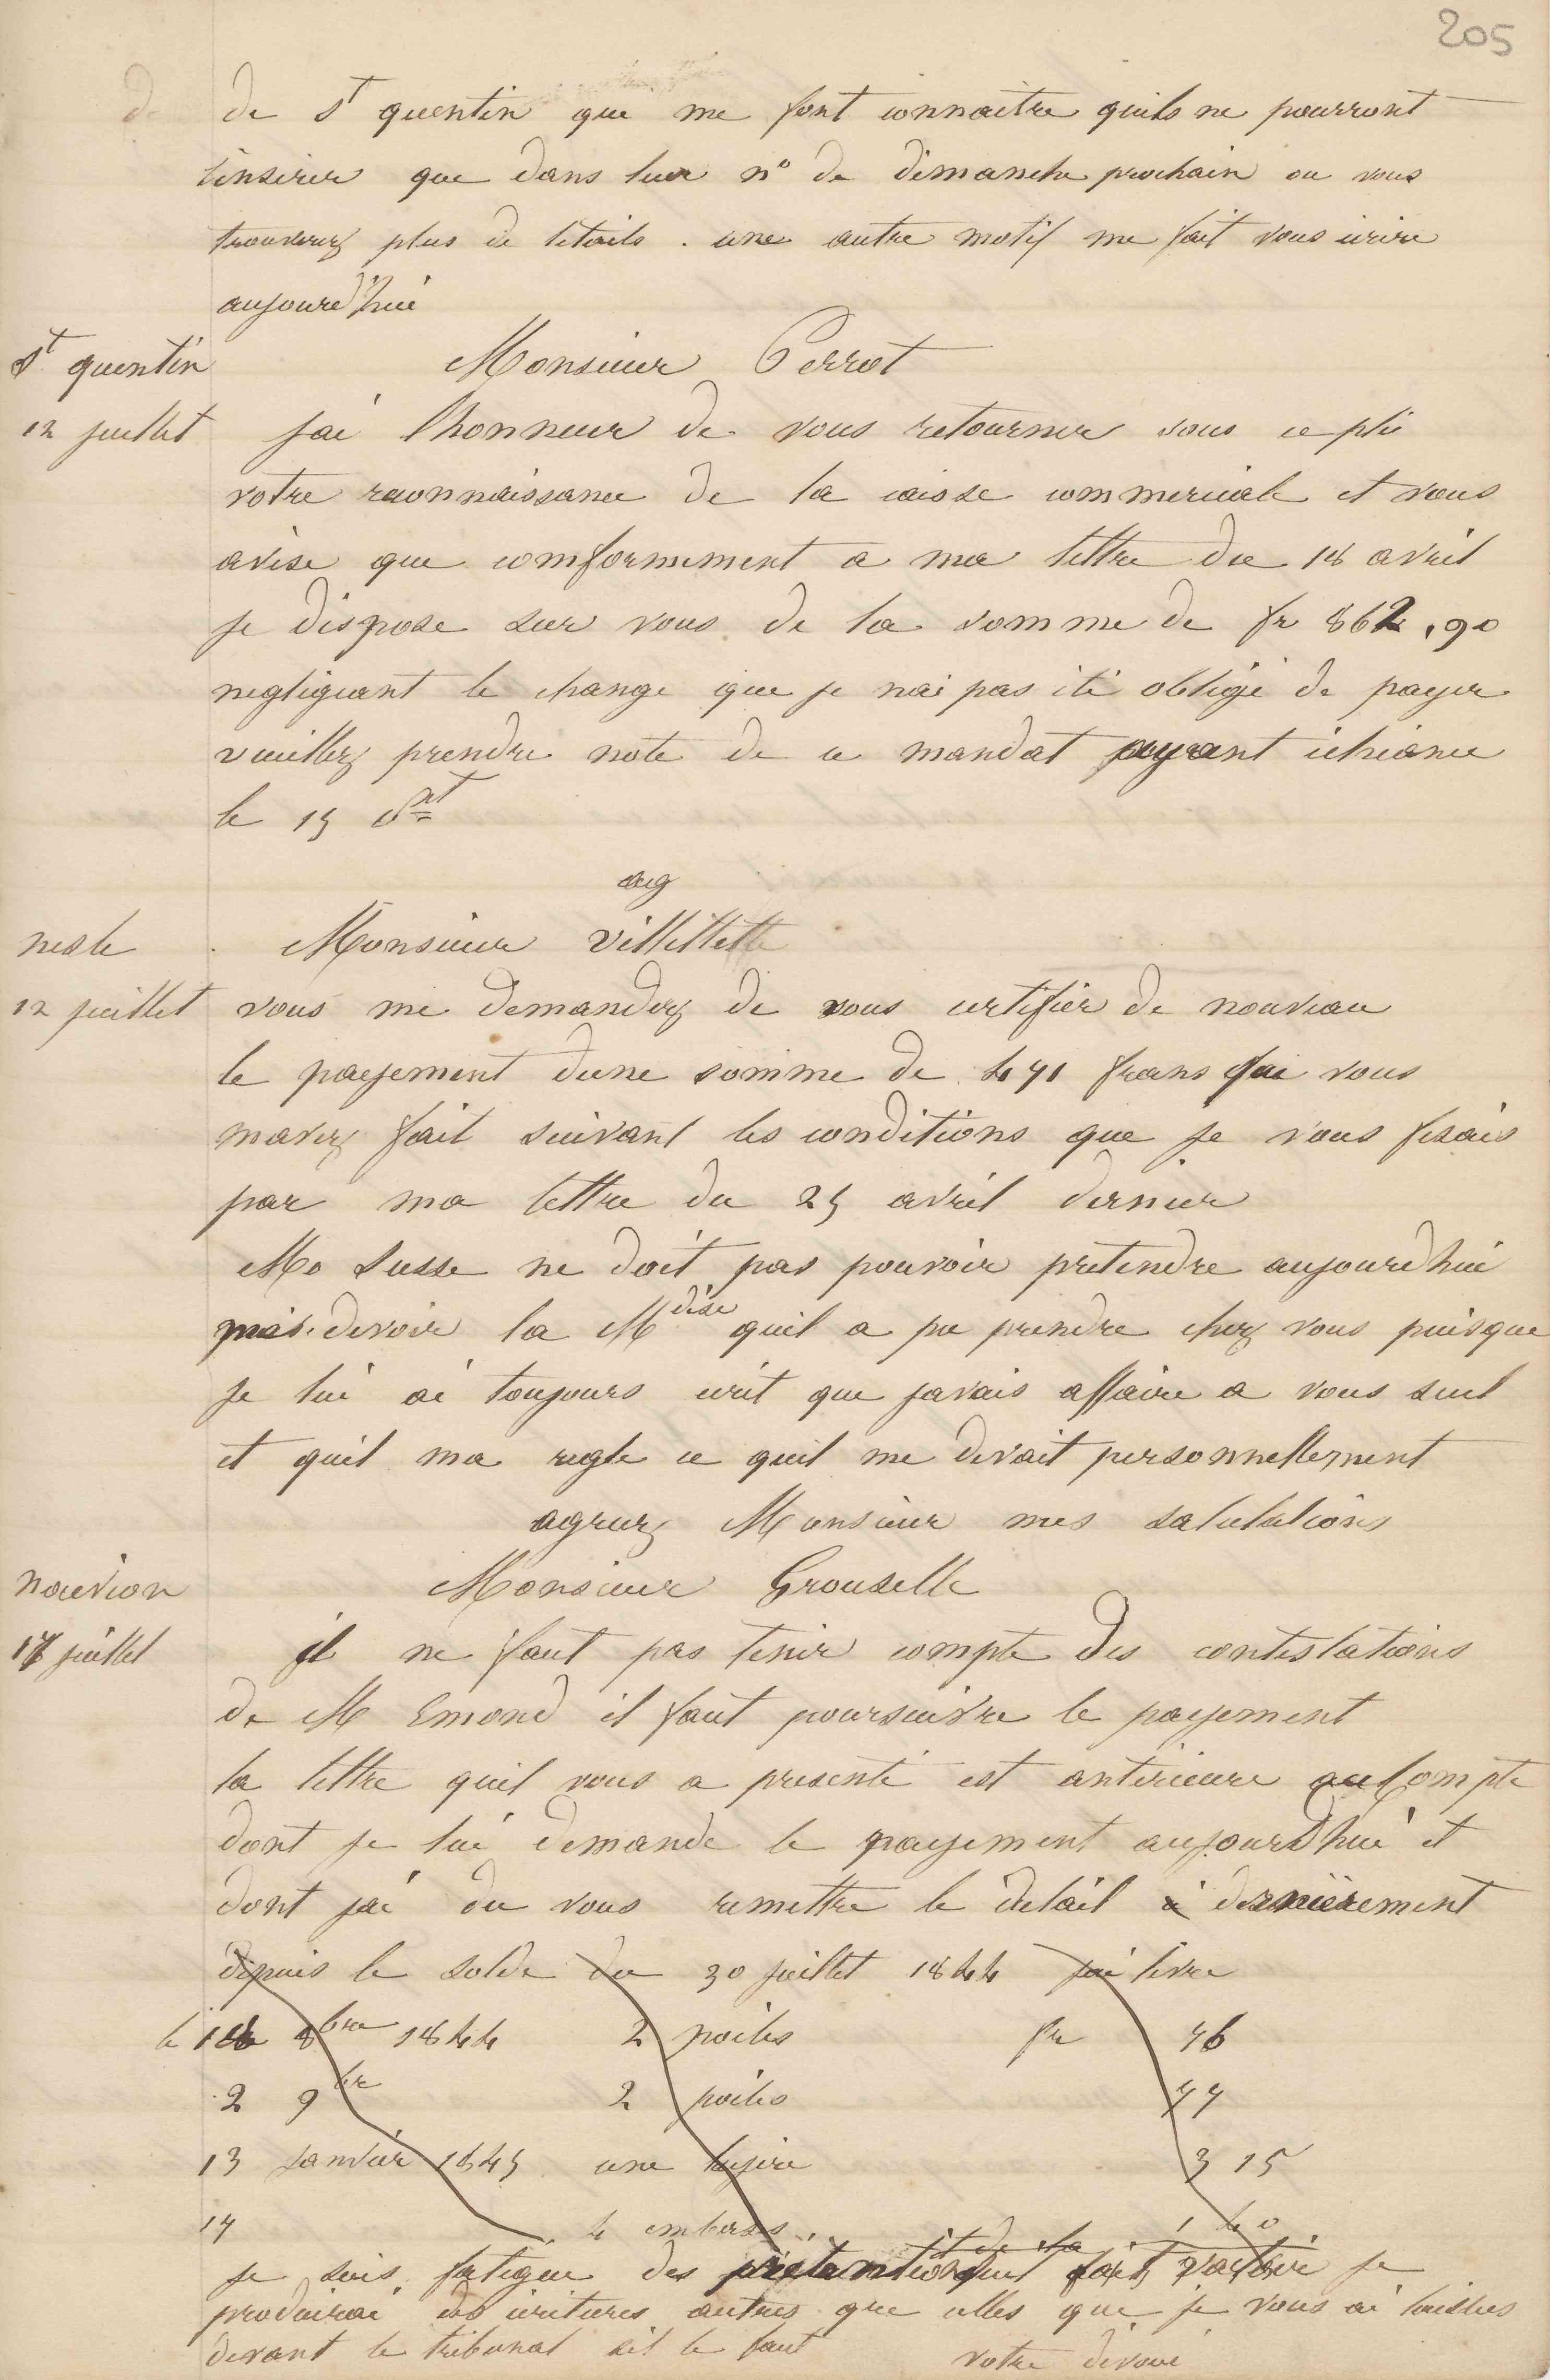 205
de St quentin que me font connaitre quils ne pourront
linserer que dans leur n° de dimanche prochain ou vous
trouverez plus de letails . une autre motif me fait vous ecrire
aujourd'hui
St quentin
Monsieur Perrot
12 juillet
jai lhonneur de vous retourner sous ce pli
votre reconnaissance de la caisse commerciale et vous
avise que comformement a ma lettre du 18 avril
je dispose sur vous de la somme de fr 862,90
negligeant le change que je nai pas été obligé de payer
veuillez prendre note de ce mandat payant echeance
le 15 ct
ag
nesle
Monsieur Villettette
12 juillet
vous me demandez de vous certifier de nouveau
le payement dune somme de 471 frans vous
mavez fait suivant les conditions que je vous fesais
par ma lettre du 25 avril dernier
Mo Susse ne doit pas pouvoir pretendre aujourdhui
devoir la Mdise quil a pu prendre chez vous puisque
je lui ai toujours ecrit que javais affaire a vous seul
et quil ma regle ce quil me devait personnellement
agreez Monsieur mes salutations
nouvion
Monsieur Grouselle
17 juillet
il ne faut pas tenir compte des contestations
de M Emond il faut poursuivre le payement
la lettre quil vous a presenté est anterieure au Compte
dont je lui demande le payement aujourdhui et
dont jai du vous remettre le detail dernièrement
depuis le solde du 30 juillet 1844 jai livre
le 8bre 1844 2 poiles fr 76
2 9bre 2 poiles 77
13 Janvier 1845 une 3 15
14 4 embases 1 40
je suis fatigué des pretentions je
produirai des ecritures autres que celles que je vous ai laissees
devant le tribunal sil le faut
votre devoué